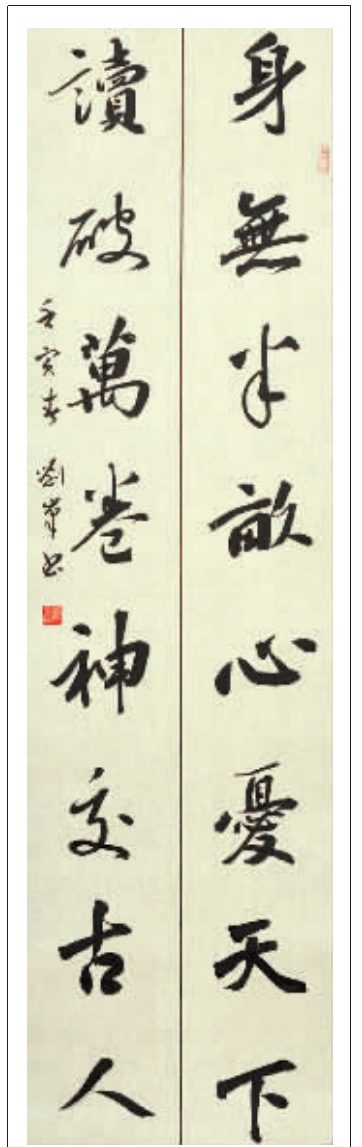 身無半畝心憂天下
讀破萬卷神交古人
壬寅春 劉 書